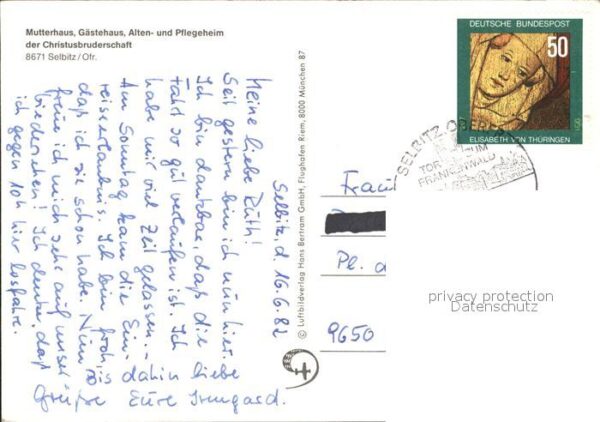 Mutterhaus, Gästehaus, Alten- und Pflegeheim
der Christusbruderschaft
8671 Selbitz/Ofr.
Selbitz, d. 16.6.82
Meine liebe Ruth!
Seit gestern bin ich nun hier.
Ich bin dankbar, daß die
Fahrt so gut verlaufen ist. Ich
habe mir viel Zeit gelassen. -
Am Sonntag kam die Ein-
reiseerlaubnis. Ich bin froh,
daß ich sie schon habe. Nun
freue ich mich sehr auf unser
Wiedersehen! Ich denke, daß
ich gegen 10h hier losfahre.
Bis dahin liebe
Grüße Eure Irmgard.
© Luftbildverlag Hans Bertram GmbH, Flughafen Riem, 8000 München 87
DEUTSCHE BUNDESPOST
50
ELISABETH VON THÜRINGEN
SELBITZ
TOR ZUM
FRANKENWALD
Frau
Pl.
9650
privacy protection
Datenschutz